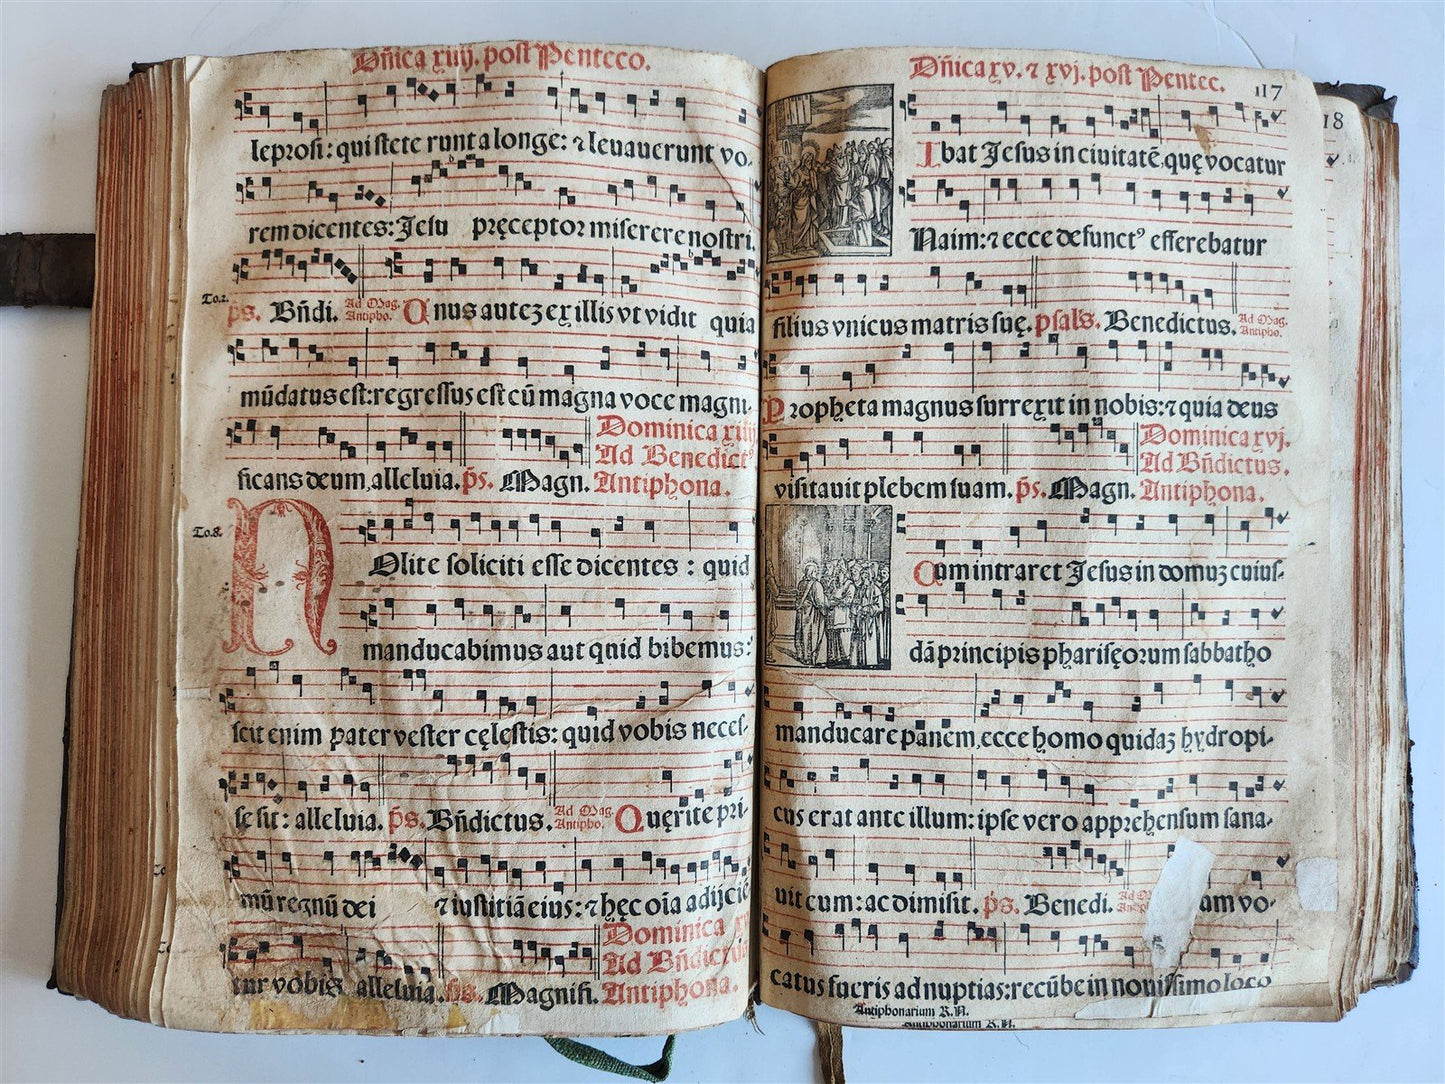 Dñica xiiij. post Penteco.
leprosi: qui stete runt a longe: ⁊ leuauerunt vo-
rem dicentes: Jesu pręceptor miserere nostri.
To.1.
ps. Bñdi. Ad Mag. Antipho. Unus autez ex illis vt vidit quia
mūdatus est: regressus est cū magna voce magni-
Dominica xiiij
Ad Benedict⁹
ficans deum, alleluia. p̄s. Magn. Antiphona.
To.8.
NOlite soliciti esse dicentes: quid
manducabimus aut quid bibemus:
scit enim pater vester cęlestis: quid vobis neces-
se sit: alleluia. p̄s. Bñdictus. Ad Mag. Antipho. Quęrite pri-
mū regnū dei ⁊ iustitiā eius: ⁊ hęc oīa adijcie
Dominica xv
Ad Bñdictus
tur vobis alleluia. p̄s. Magnifi. Antiphona.
Dñica xv. ⁊ xvj. post Pentec. 117
Ibat Jesus in ciuitatē. quę vocatur
Naim: ⁊ ecce defunct⁹ efferebatur
filius vnicus matris suę. psals. Benedictus. Ad Mag. Antipho.
Propheta magnus surrexit in nobis: ⁊ quia deus
Dominica xvj.
Ad Bñdictus.
visitauit plebem suam. p̄s. Magn. Antiphona.
Cum intraret Jesus in domuz cuius-
dā principis pharisęorum sabbatho
manducare panem, ecce homo quidaz hydropi-
cus erat ante illum: ipse vero apprehensum sana-
uit eum: ac dimisit. p̄s. Benedi. Ad am vo-
catus fueris ad nuptias: recūbe in nouissimo loco
Antiphonarium R.N.
Antiphonarium R.N.
18